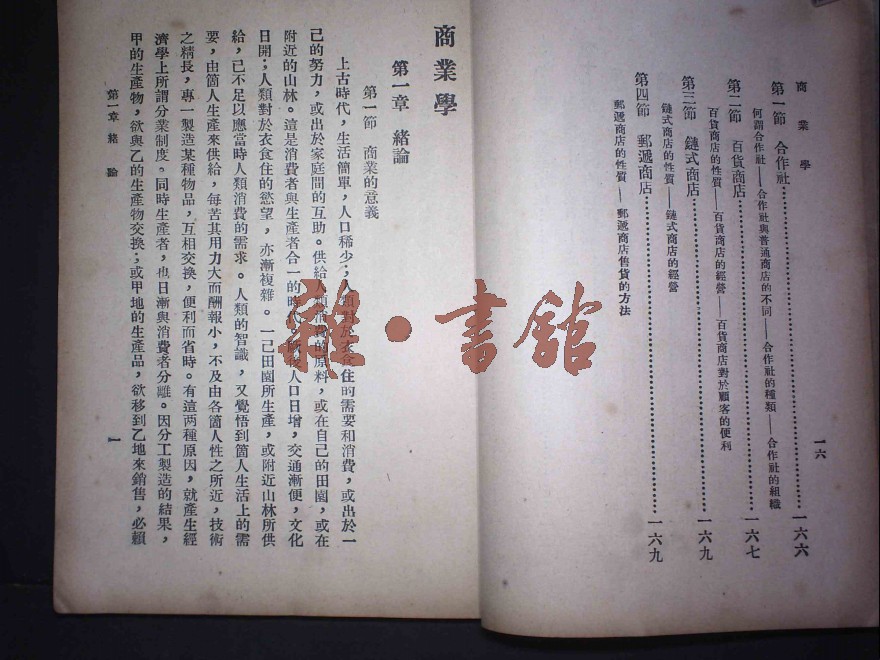 商業學
一六
第一節 合作社……一六六
何謂合作社——合作社與普通商店的不同——合作社的種類——合作社的組織
第二節 百貨商店……一六七
百貨商店的性質——百貨商店的經營——百貨商店對於顧客的便利
第三節 鏈式商店……一六九
鏈式商店的性質——鏈式商店的經營
第四節 郵遞商店……一六九
郵遞商店的性質——郵遞商店售貨的方法
商業學
第一章 緒論
第一節 商業的意義
上古時代,生活簡單,人口稀少;人類對於衣食住的需要和消費,或出於一
己的努力,或出於家庭間的互助。供給人類消費的原料,或在自己的田園,或在
附近的山林。這是消費者與生產者合一的時代。人口日增,交通漸便,文化
日開;人類對於衣食住的慾望,亦漸複雜。一己田園所生產,或附近山林所供
給,已不足以應當時人類消費的需求。人類的智識,又覺悟到箇人生活上的需
要,由箇人生產來供給,每苦其用力大而酬報小,不及由各箇人性之所近,技術
之精長,專一製造某種物品,互相交換,便利而省時。有這兩種原因,就產生經
濟學上所謂分業制度。同時生產者,也日漸與消費者分離。因分工製造的結果,
甲的生產物,欲與乙的生產物交換;或甲地的生產品,欲移到乙地來銷售,必賴
第一章 緒論
一
雜·書館